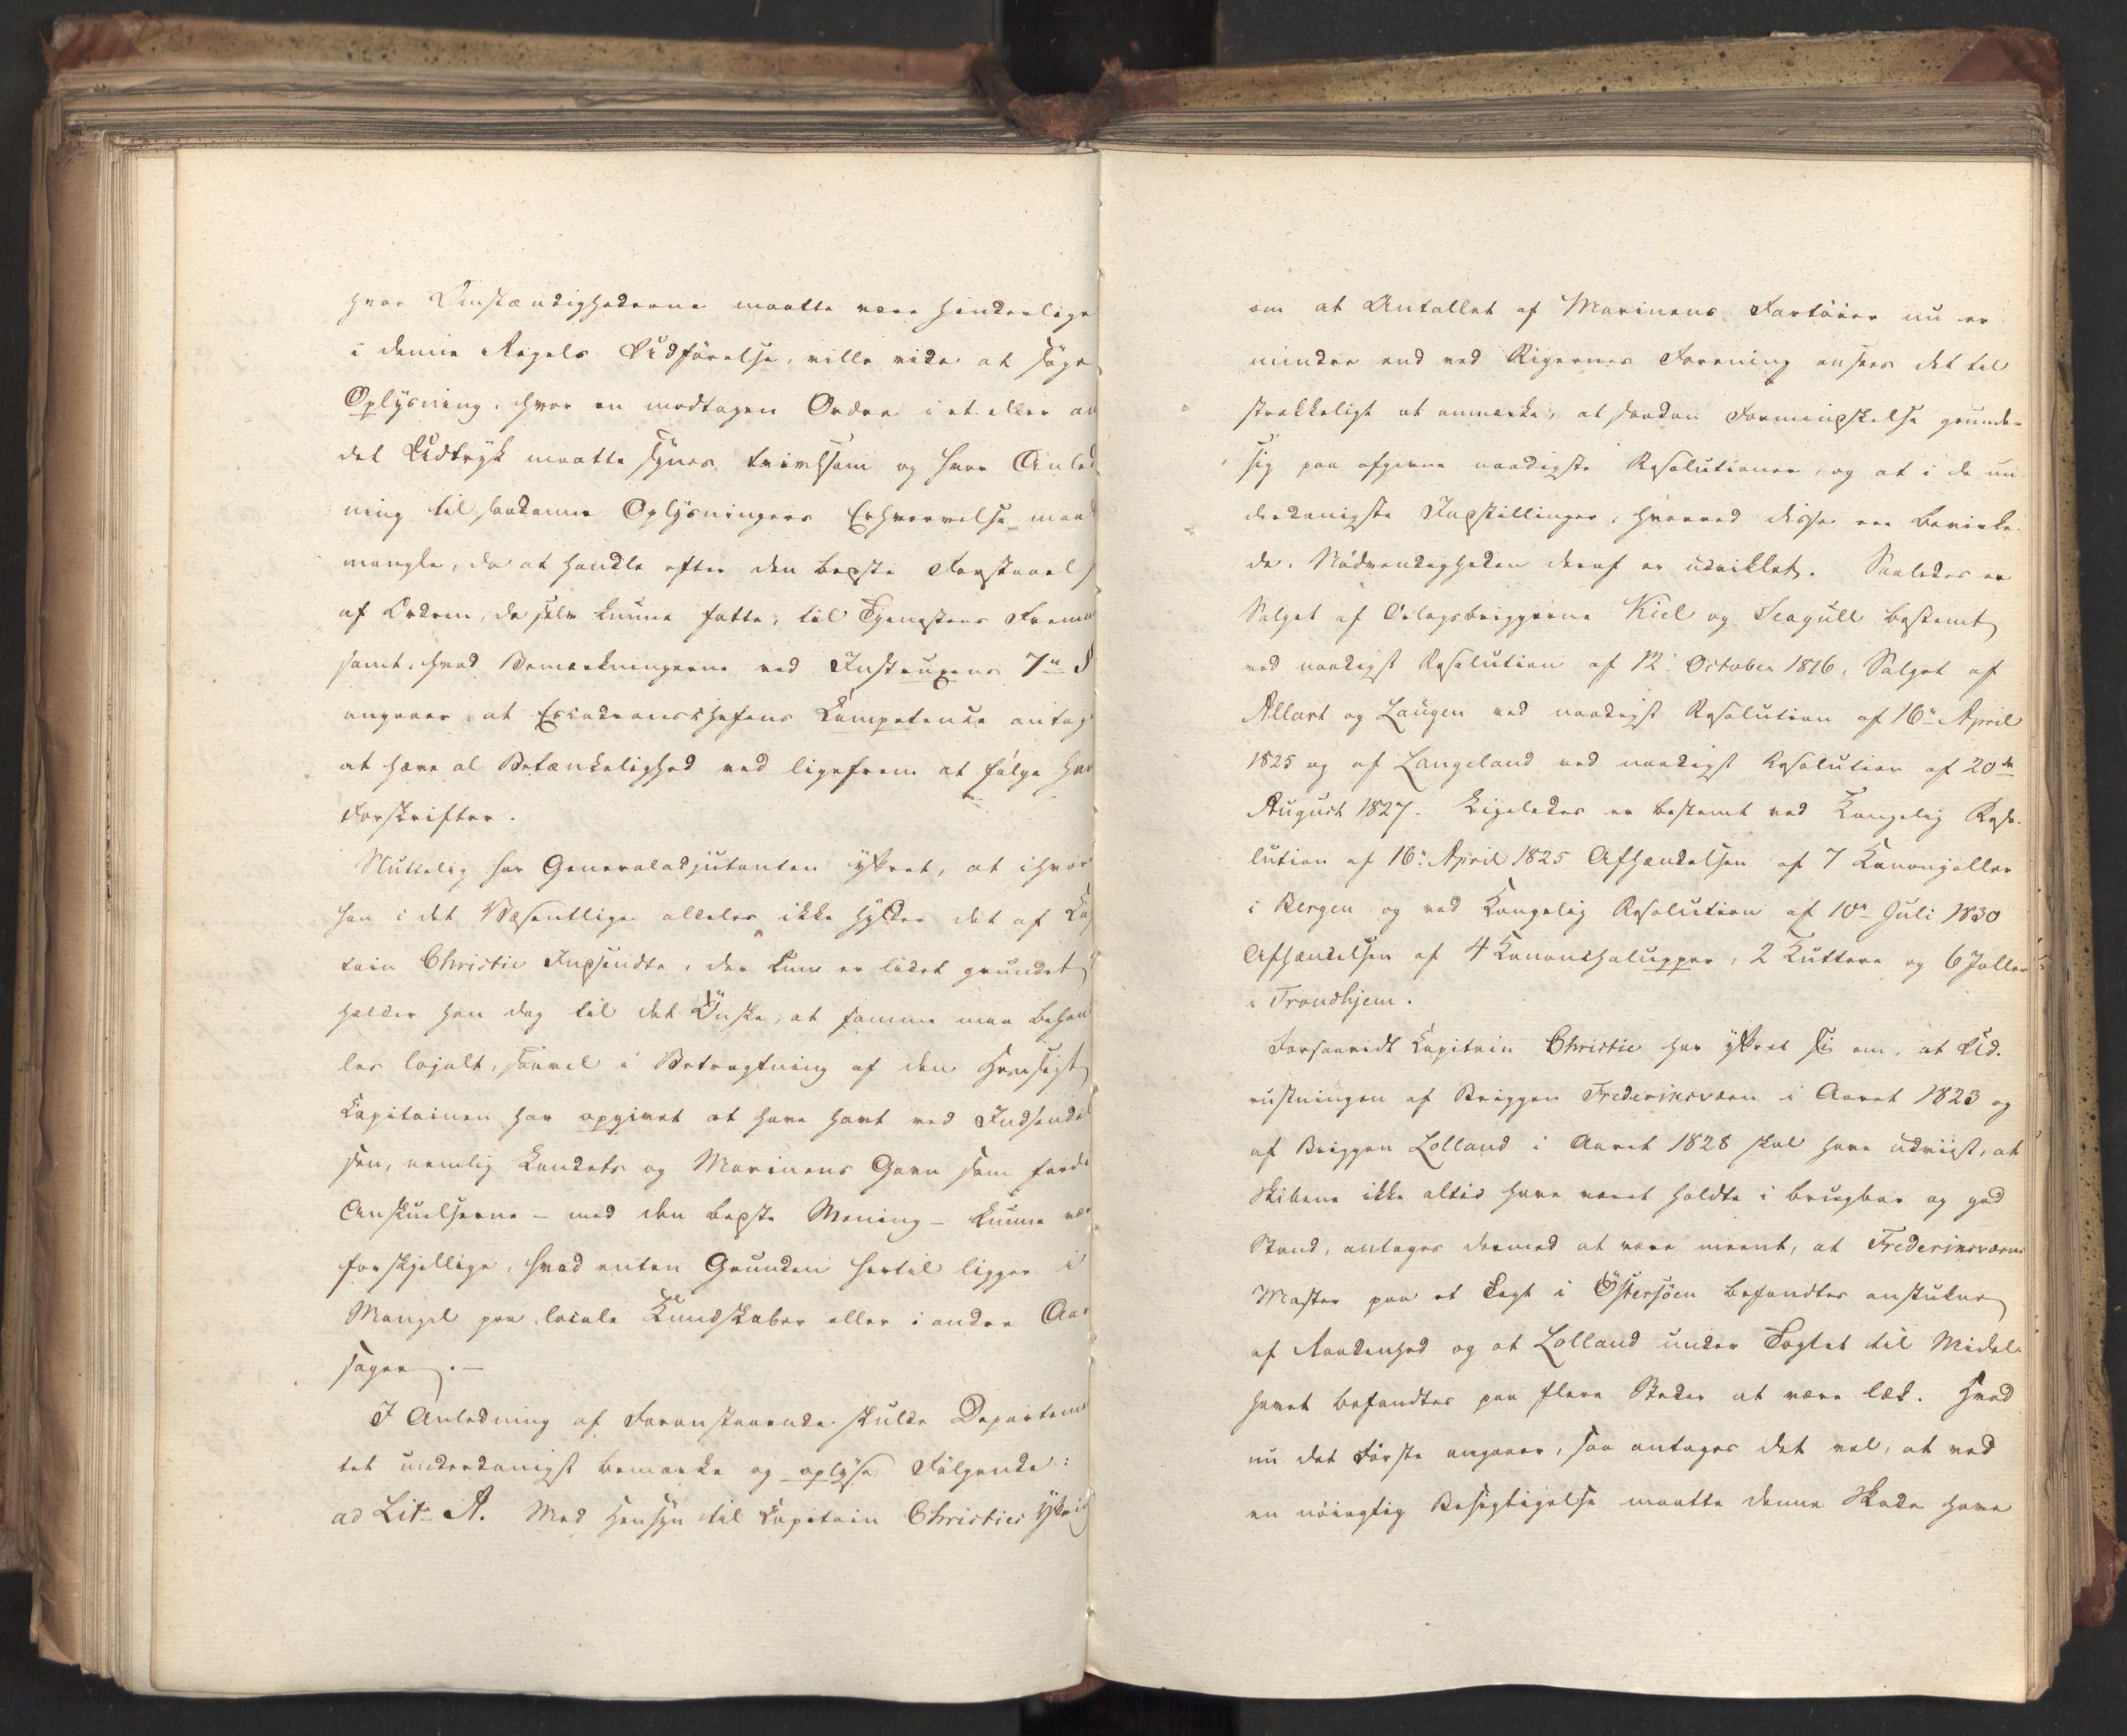 hvor Omstændighederne maatte være hinderlige
i denne Regels Udførelse, ville vide at søge
Oplysning, hvor en modtagen Ordre i et eller an
det Udtryk maatte synes tvivlsom og hvor Anled
ning til saadanne Oplysningers Erhvervelse maat
mangle, da at handle efter den bedste Forstaael
af Ordren, de selv kunne fatte, til Tjenestens Fremme
samt, hvad Bemærkningerne ved Instruxens 7de §
angaaer, at Escadrechefens Competence antages
at hæve al Betænkelighed ved ligefrem at følge hans
Forskrifter.
Sluttelig har Generaladjutanten yttret, at ihvor
han i det Væsentlige aldeles ikke hylder det af Cap
tain Christie Indsendte, der kun er lidet grundet
holder han dog til det Ønske, at samme maa behand
les lojalt, saavel i Betragtning af den Hensigt
Capitainen har opgivet at have havt ved Indsendel
sen, nemlig Landets og Marinens Gavn som fordi
Anskuelserne – med den bedste Mening – kunne være
forskjellige, hvad enten Grunden hertil ligger i
Mangel paa locale Kundskaber eller i andre Aar
sager. –
I Anledning af Foranstaaende skulde Departemen
tet underdanigst bemærke og oplyse Følgende:
ad Litr A. Med Hensyn til Capitain Christies Yttring
om at Antallet af Marinens Fartøier nu er
mindre end ved Rigernes Forening ansees det til
strækkeligt at anmærke, at saadan Formindskelse grunder
sig paa afgivne naadigste Resolutioner, og at i de un
derdanigste Indstillinger, hvorved disse ere bevirke
de, Nødvendigheden deraf er udviklet. Saaledes er
Salget af Orlogsbriggerne Kiel og Seagull bestemt
ved naadigst Resolution af 12 October 1816, Salget af
Allart og Laugen ved naadigst Resolution af 16de April
1825 og af Langeland ved naadigst Resolution af 20de
August 1827. Ligeledes er bestemt ved Kongelig Reso
lution af 16de April 1825 Afhændelsen af 7 Kanonjoller
i Bergen og ved Kongelig Resolution af 10de Juli 1830
Afhændelsen af 4 Kanonchalupper, 2 Kuttere og 6 Joller
i Trondhjem.
Forsaavidt Capitain Christie har yttret sig om, at Ud
rustningen af Briggen Frederiksværn i Aaret 1823 og
af Briggen Lolland i Aaret 1828 skal have udviist, at
Skibene ikke altid have været holdte i brugbar og god
Stand, antages dermed at være meent, at Frederiksværns
Master paa et Togt i Østersøen befandtes anstukne
af Raadenhed og at Lolland under Togtet til Middel
havet befandtes paa flere Steder at være læk. Hvad
nu det Første angaaer, saa antages det vel, at ved
en nøiagtig Besigtigelse maatte denne Skade have